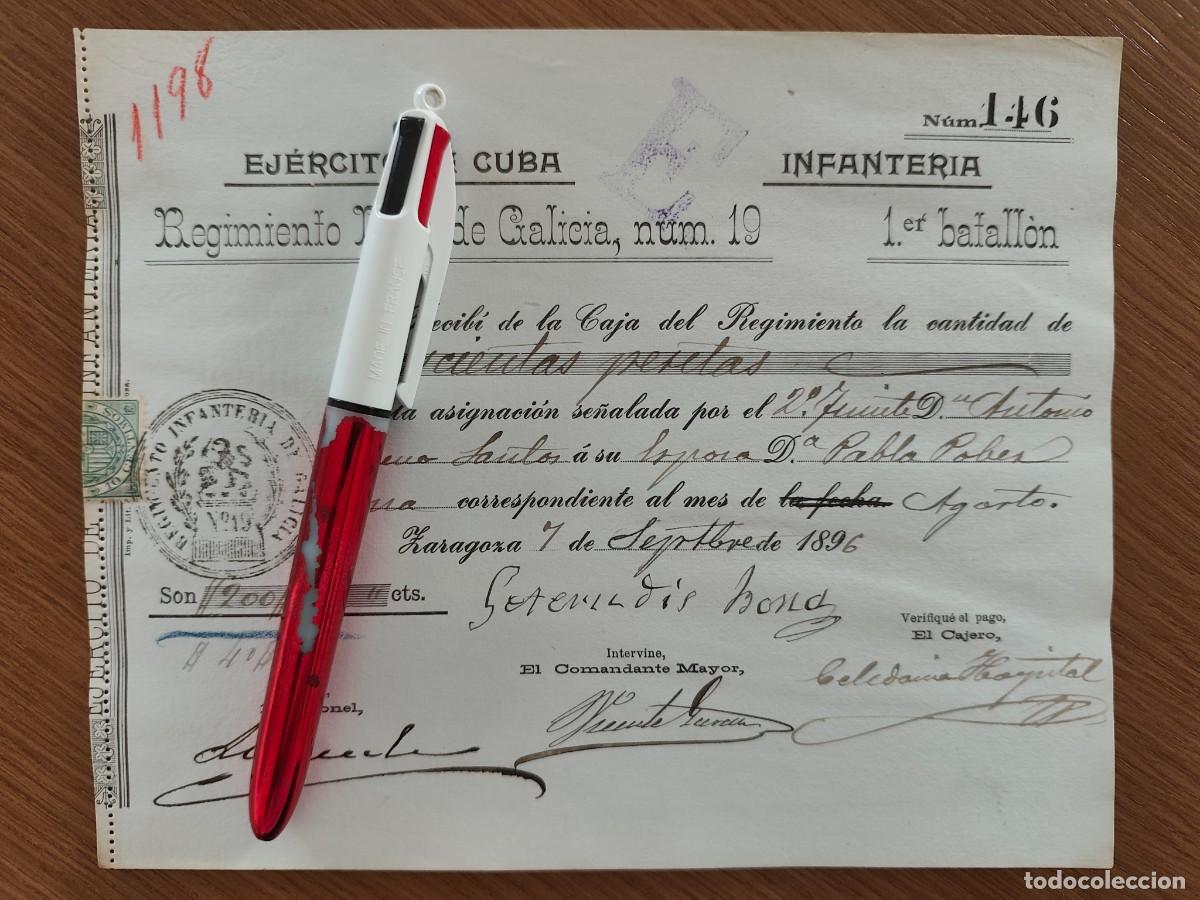 1198
Núm. 146
EJÉRCITO CUBA INFANTERIA
Regimiento de Galicia, núm. 19 1.er batallòn
ecibí de la Caja del Regimiento la cantidad de
cientas pesetas
la asignación señalada por el 2.º Tte D.n Antonio
Santos á su Esposa D.ª Pabla
correspondiente al mes de la fecha Agosto.
Zaragoza 7 de Septbre de 1896
REGIMIENTO INFANTERIA DE GALICIA
Nº 19
Son 200 cts.
Verifiqué el pago,
El Cajero,
Intervine,
El Comandante Mayor,
onel,
Celedonio Hospital
Vicente
EJERCITO DE
Imp. y Lit.
MADE IN FRANCE
E
todocoleccion